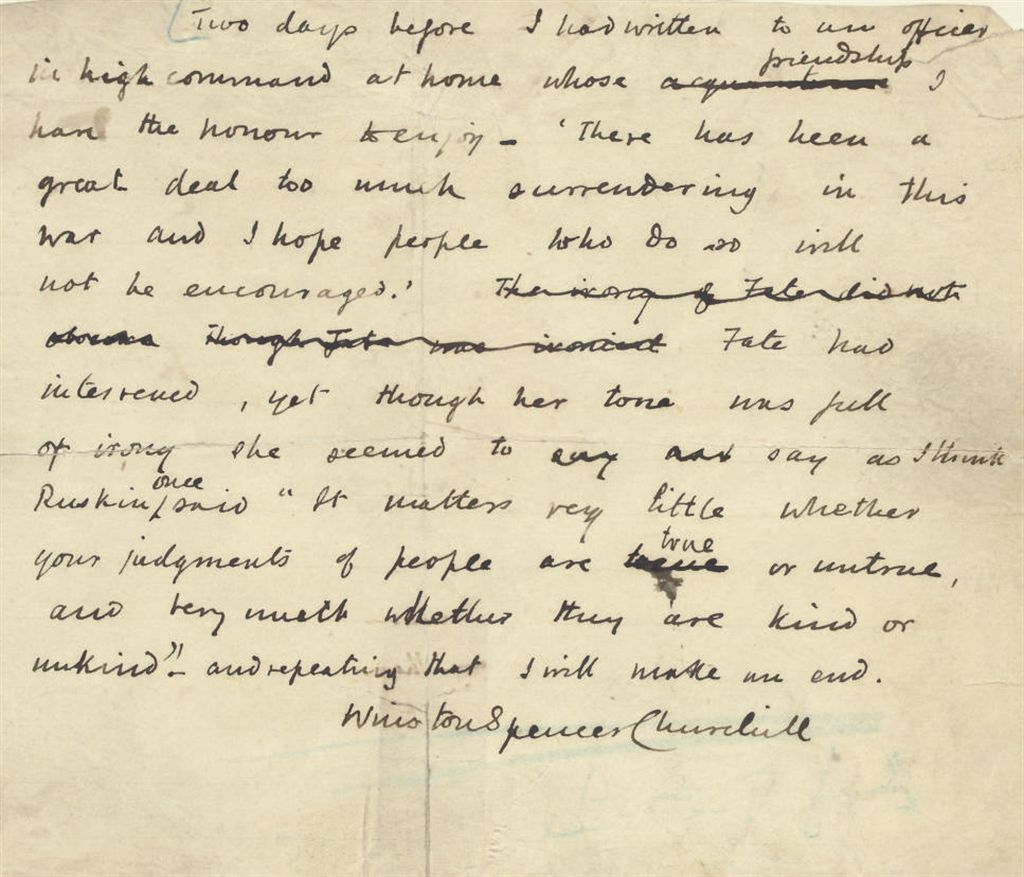 Two days before I had written to an officer
in high command at home whose acquaintance friendship I
have the honour to enjoy – 'There has been a
great deal too much surrendering in this
war and I hope people who do so will
not be encouraged.' The irony of Fate did not
Though Fate was ironical Fate had
intervened, yet though her tone was full
of irony she seemed to say say as I think
Ruskin once said "It matters very little whether
your judgments of people are true true or untrue,
and very much whether they are kind or
unkind" – and repeating that I will make an end.
Winston Spencer Churchill